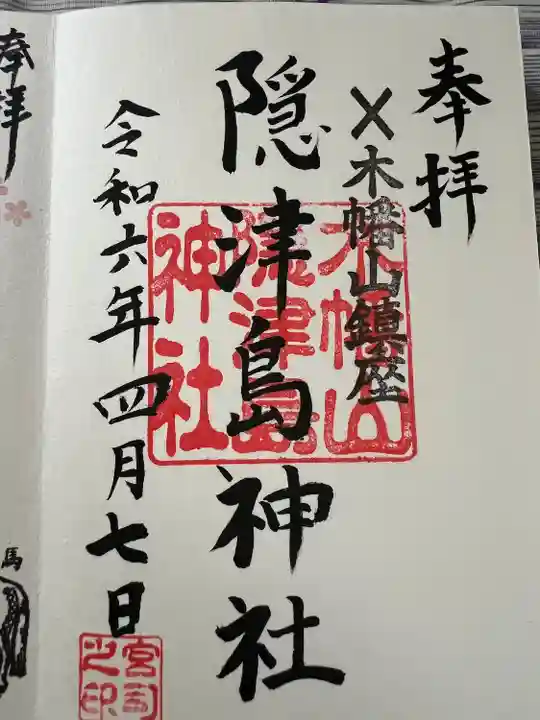 奉拝
㐅木幡山鎮座
隠津島神社
令和六年四月七日
木幡山
隠津島
神社
宮司
之印
奉拝
馬